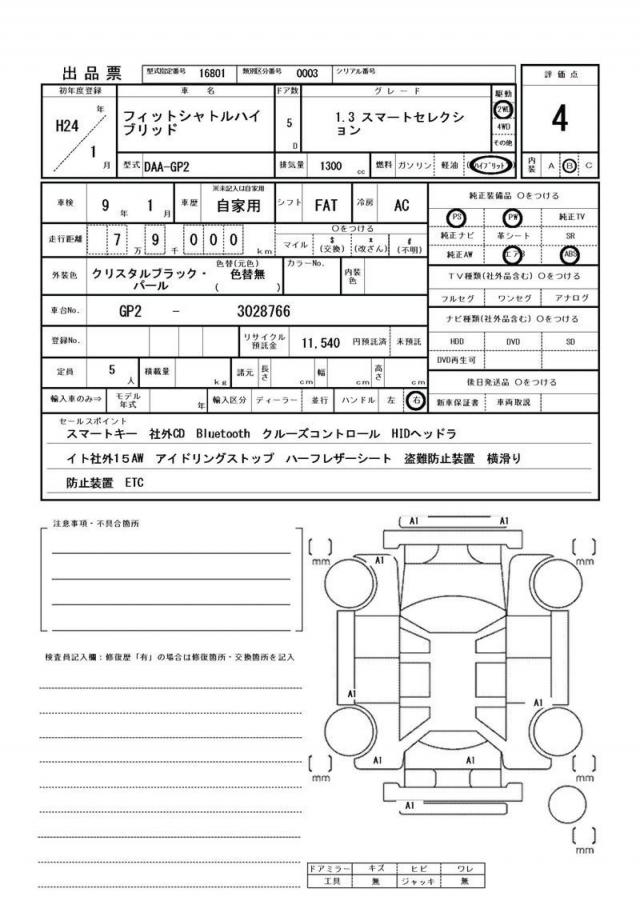 出品票 型式指定番号 16801 類別区分番号 0003 シリアル番号
評価点
4
初年度登録 車名 ドア数 グレード 駆動
H24 年 1 月
フィットシャトルハイ
ブリッド
5 D
1.3 スマートセレクシ
ョン
2WD
4WD
その他
型式 DAA-GP2 排気量 1300 cc 燃料 ガソリン 軽油 (ハイブリット)
内装 A B C
車検 9 年 1 月 車歴 ※未記入は自家用 自家用 シフト FAT 冷房 AC
走行距離 7 万 9 千 0 0 0 km
〇をつける
マイル $(交換) *(改ざん) #(不明)
外装色 クリスタルブラック・
パール
色替(元色)
色替無
( )
カラーNo. 内装色
車台No. GP2 - 3028766
登録No. リサイクル預託金 11,540 円預託済 未預託
定員 5 人 積載量 kg 諸元 長さ cm 幅 cm 高さ cm
輸入車のみ⇒ モデル年式 年 輸入区分 ディーラー 並行 ハンドル 左 右
純正装備品 〇をつける
PS PW 純正TV
純正ナビ 革シート SR
純正AW エアB ABS
TV種類(社外品含む) 〇をつける
フルセグ ワンセグ アナログ
ナビ種類(社外品含む) 〇をつける
HDD DVD SD
DVD再生可
後日発送品 〇をつける
新車保証書 車両取説
セールスポイント
スマートキー 社外CD Bluetooth クルーズコントロール HIDヘッドラ
イト社外15AW アイドリングストップ ハーフレザーシート 盗難防止装置 横滑り
防止装置 ETC
注意事項・不具合箇所
検査員記入欄：修復歴「有」の場合は修復箇所・交換箇所を記入
A1 A1
[ ] mm
[ ] mm
A1
A1
A1
A1 A1
[ ] mm
[ ] mm
A1
[ ] mm
ドアミラー キズ ヒビ ワレ
工具 無 ジャッキ 無